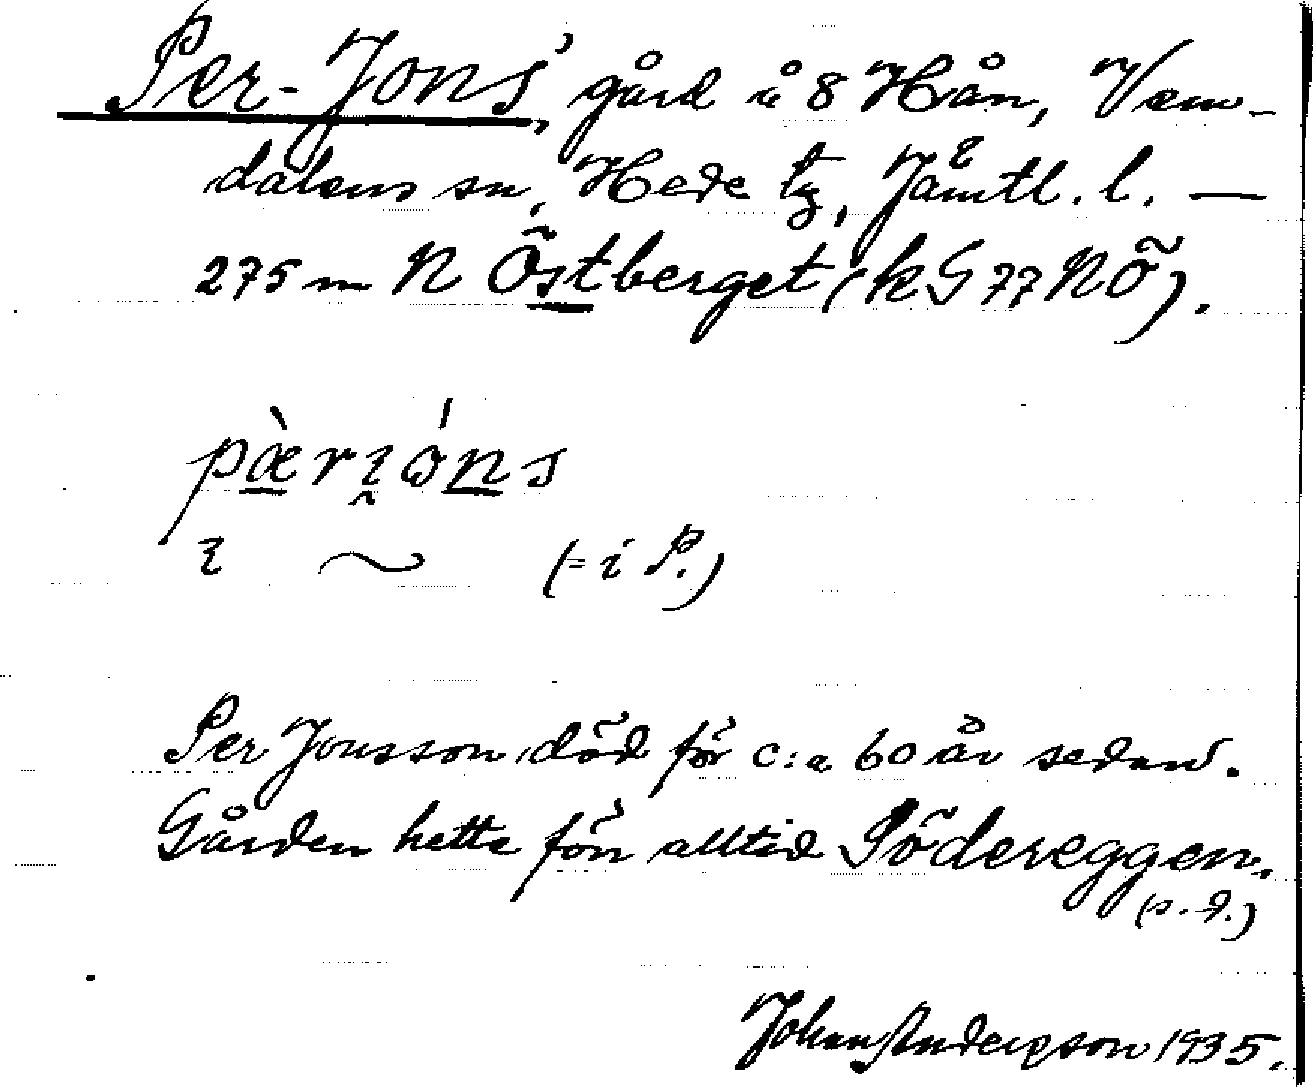 Per-Jons', gård å 8 Hån, Vem-
dalens sn, Hede tg, Jämtl. l. —
275 m N Östberget (k G 77 NÖ).
pæ̀ri̯óns
i ~ (= i P.)
Per Jonsson död för c:a 60 år sedan.
Gården hette förr alltid Södereggen.
(s. d.)
Johan Anderson 1935.